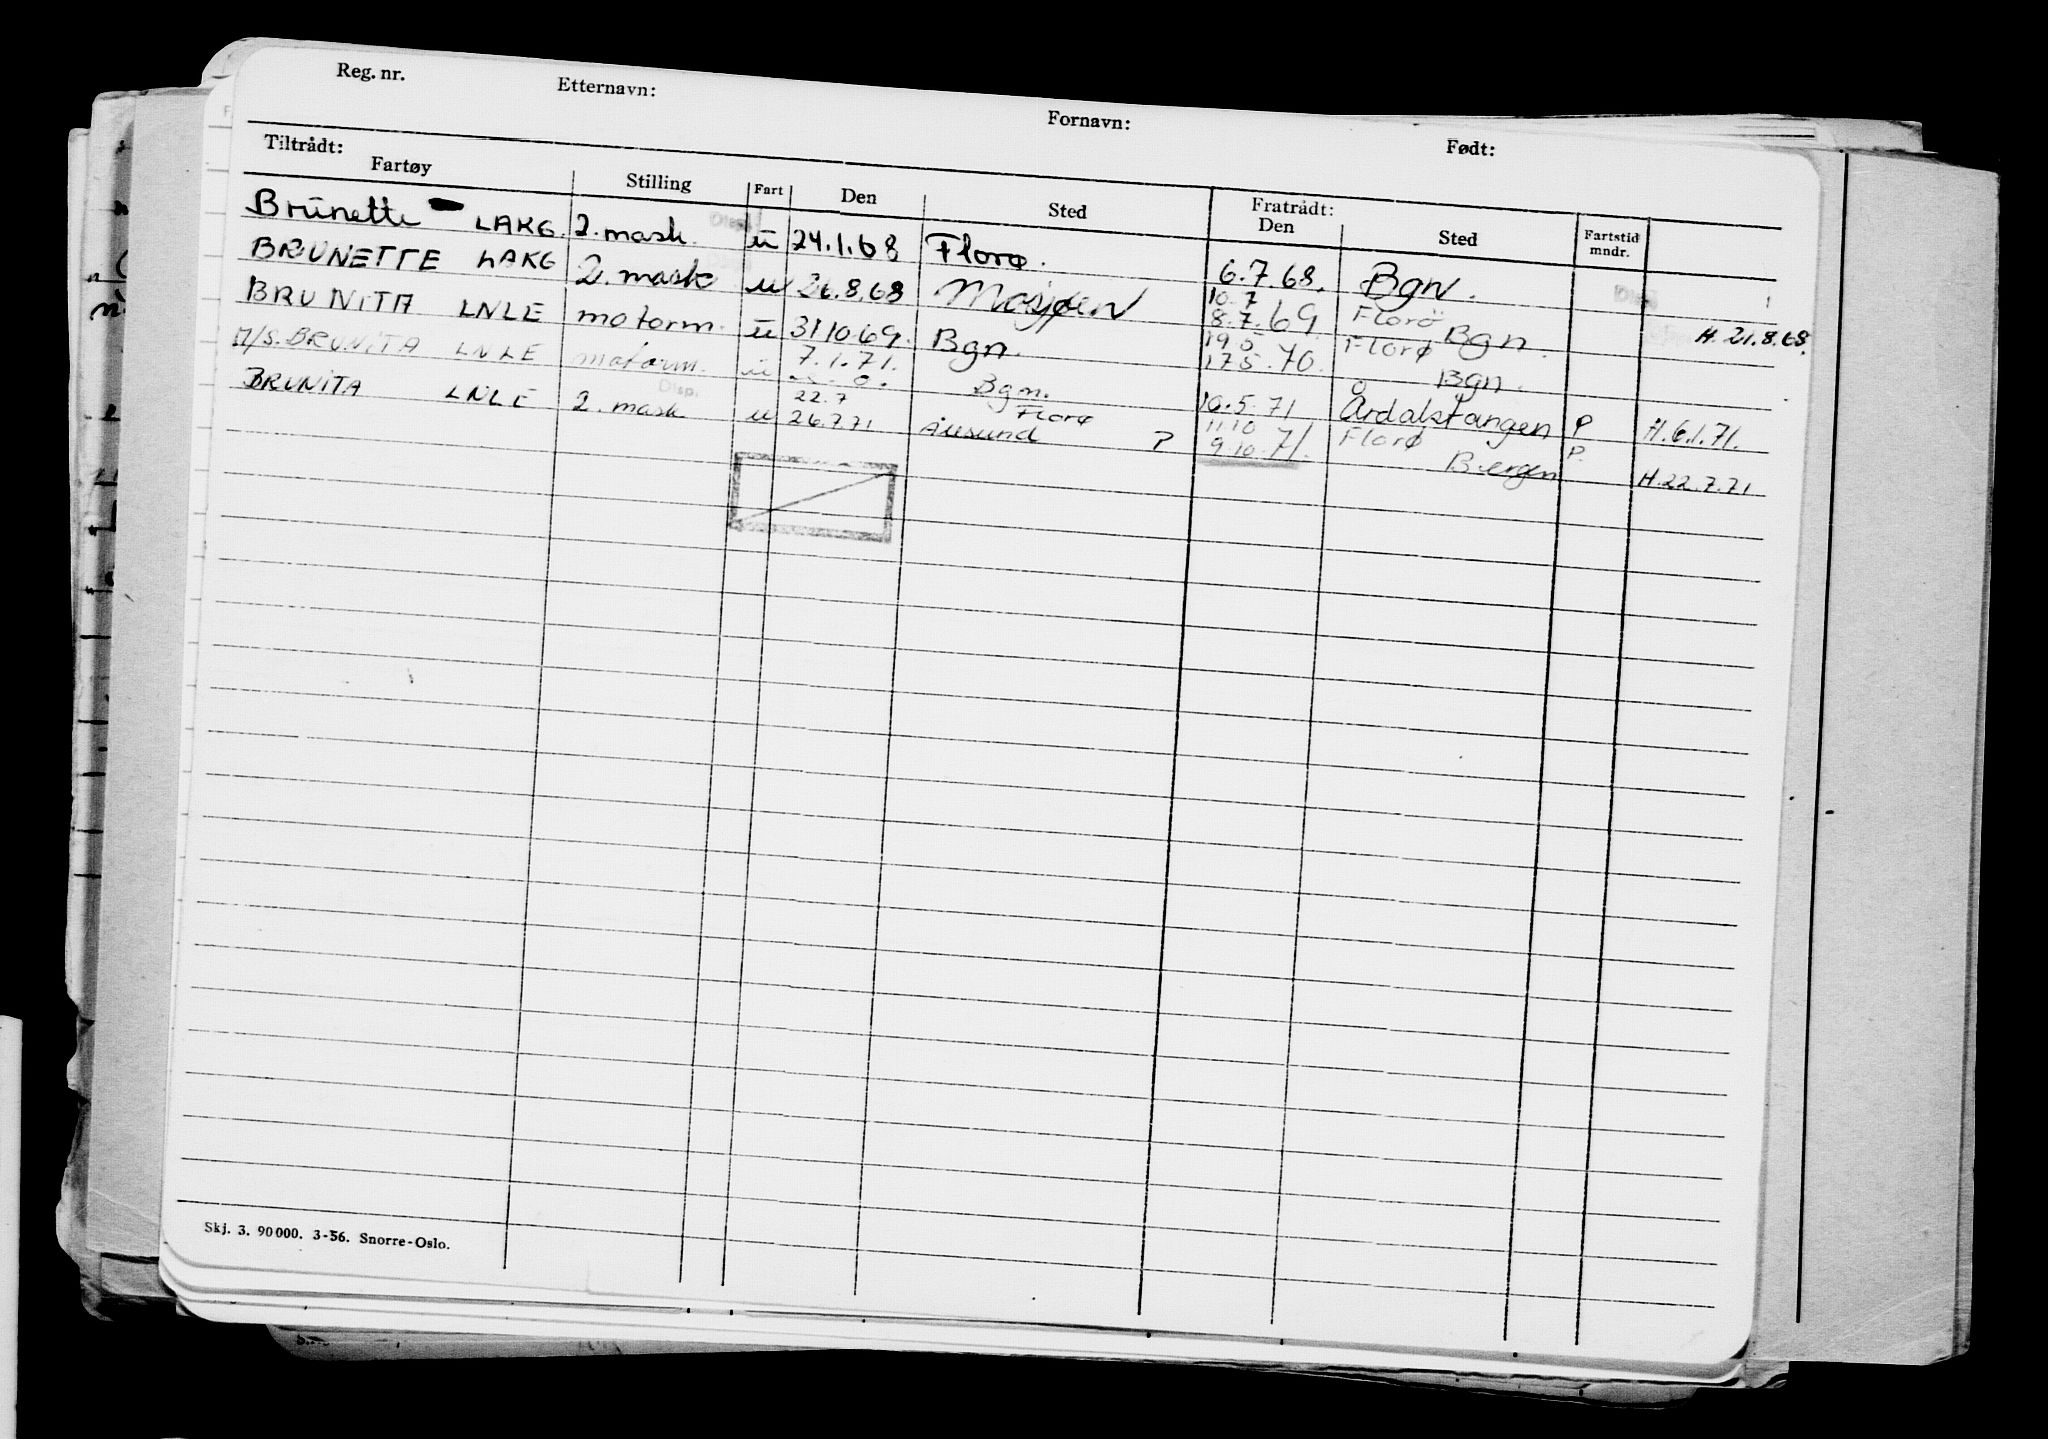 Reg. nr. Etternavn: Fornavn: Født:
Tiltrådt: Fratrådt:
Fartøy Stilling Fart Den Sted Den Sted Fartstid mndr.
Brunette LAKG. 2. mask. u 24.1.68 Florø. 6.7.68. Bgn.
BRUNETTE LAKG 2. mask u 26.8.68 Mosjøen 10.7 8.7.69 Florö Bgn. H. 21.8.68.
BRUNITA LNLE motorm. u 31 10.69. Bgn. 19 5 17 5.70. Florø Bgn.
M/S. BRUNITA LNLE motorm. u 7.1.71. Bgn. 10.5.71 Årdalstangen P H.6.1.71.
BRUNITA LNLE 2. mask Disp. u 22.7 26.7.71 Florø Ålesund P 11.10 9.10.71. Florø Bergen P. H.22.7.71
Skj. 3. 90 000. 3-56. Snorre-Oslo.